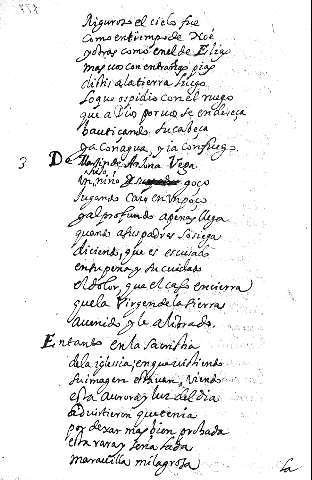 Riguroso el cielo fue
como en tiempo de Noé
y otras como en el de Eligo
mas uos con entrañas pias
distis a la tierra fuego
lo que os pidio con el ruego
que a Dios por uos se endereça
bauticando su cabeça
ya con agua, y ia con fuego.
3 De de Antona Vega
vn niño goço
jugando cayo en vn poço
y al profundo apenas llega
quando a sus padres sosiega
diciendo, que es escusado
en su pena y su cuidado
el dolor, que el caso encierra
que la Virgen de la sierra
a uenido y le a librado.
Entando en la sacristia
de la iglesia, en que uistiendo
su imagen estauan, viendo
esta aurora y luz del dia
aduirtieron que tenia
por dexar mas bien probada
esta rara y
marauilla milagrosa
la